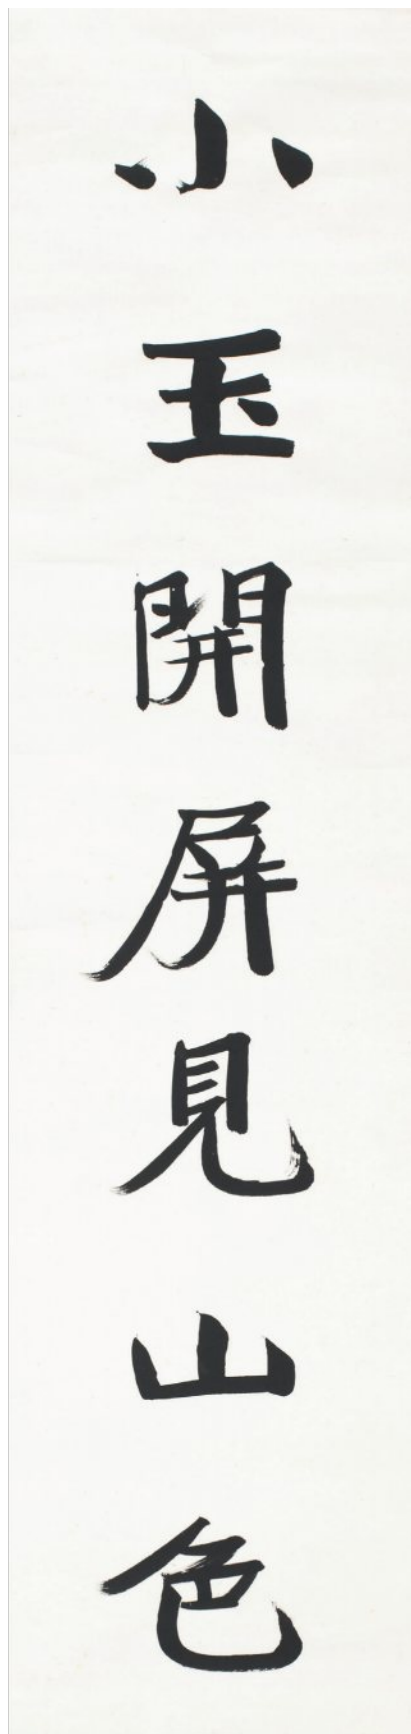 小玉開屏見山色